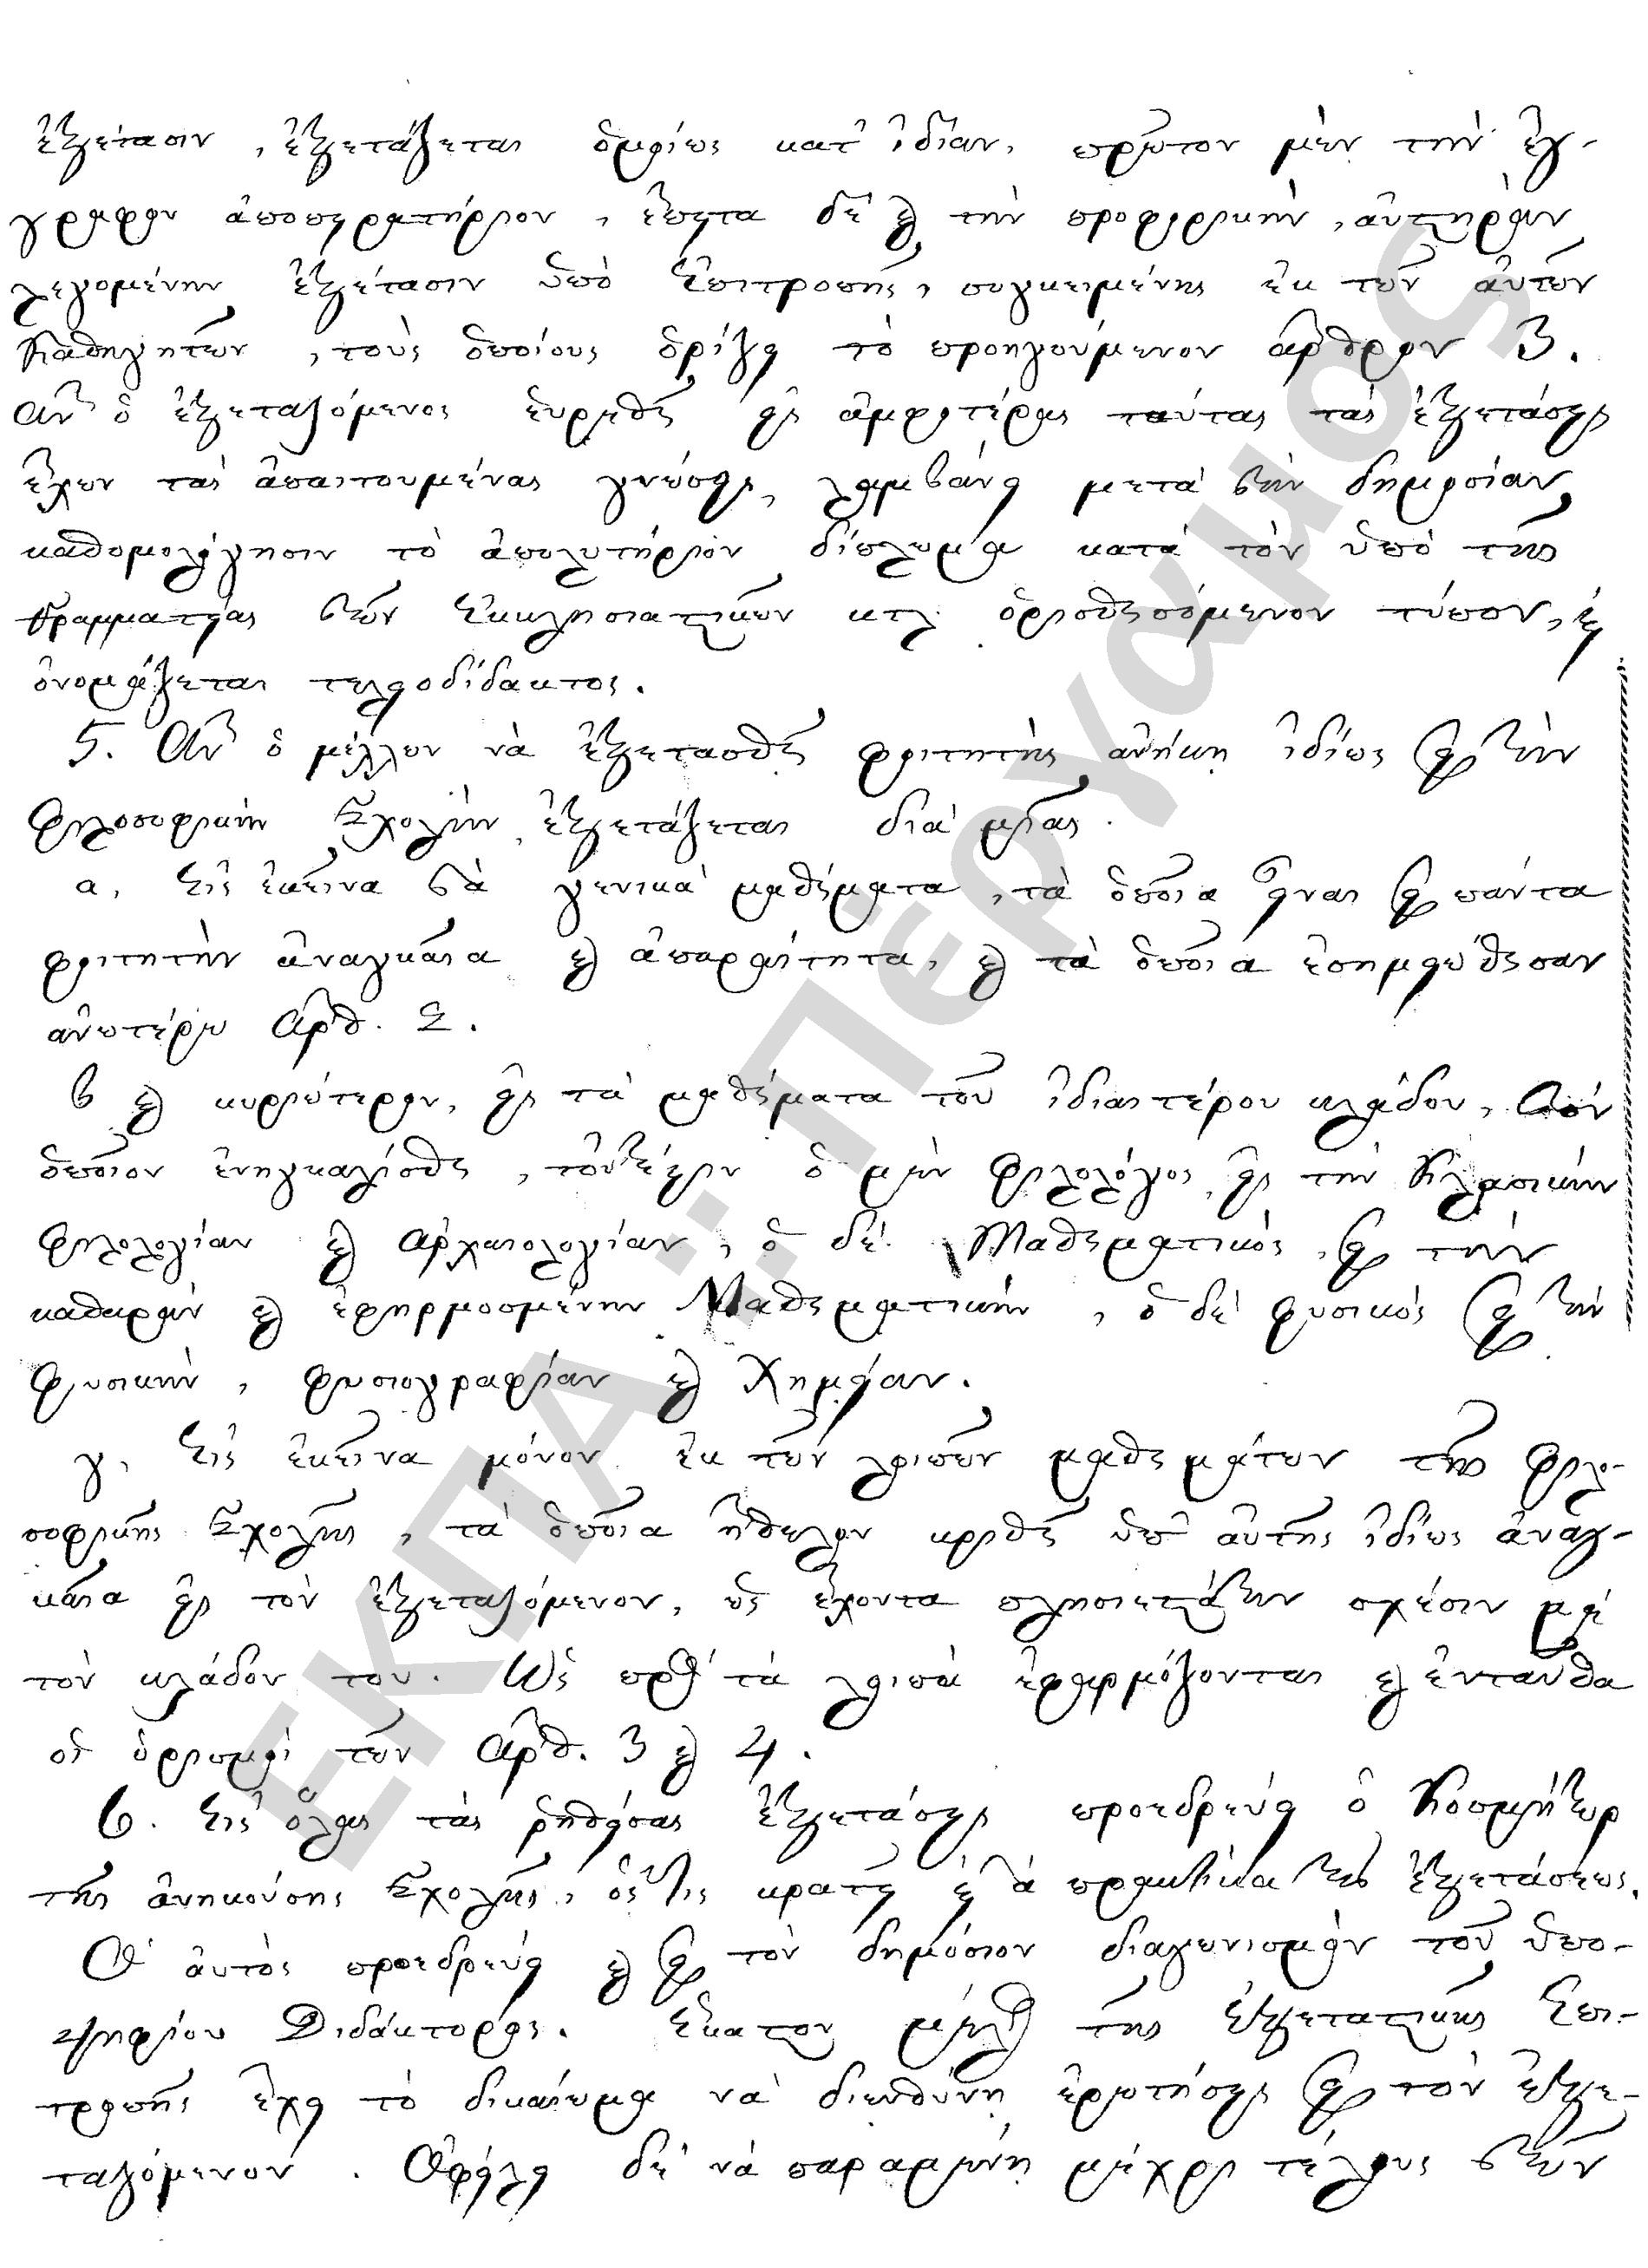 ἐξέτασιν, ἐξετάζεται ὁμοίως κατ' ἰδίαν, πρῶτον μὲν τὴν ἔγ-
γραφον ἀποπειρατήριον, ἔπειτα δὲ καὶ τὴν προφορικὴν, αὐστηρὰν
λεγομένην ἐξέτασιν ὑπὸ Ἐπιτροπῆς, συγκειμένης ἐκ τῶν αὐτῶν
Καθηγητῶν, τοὺς ὁποίους ὁρίζει τὸ προηγούμενον ἄρθρον 3.
Ἂν ὁ ἐξεταζόμενος εὑρεθῇ εἰς ἀμφοτέρας ταύτας τὰς ἐξετάσεις
ἔχων τὰς ἀπαιτουμένας γνώσεις, λαμβάνει μετὰ τὴν δημοσίαν
καθομολόγησιν τὸ ἀπολυτήριον δίπλωμα κατὰ τὸν ὑπὸ τῆς
Γραμματείας τῶν Ἐκκλησιαστικῶν κτλ ὁρισθησόμενον τύπον, καὶ
ὀνομάζεται τελειοδίδακτος.
5. Ἂν ὁ μέλλων νὰ ἐξετασθῇ φοιτητὴς ἀνήκῃ ἰδίως εἰς τὴν
Φιλοσοφικὴν Σχολὴν, ἐξετάζεται διὰ μιᾶς
α, Εἰς ἐκεῖνα τὰ γενικὰ μαθήματα, τὰ ὁποῖα εἶναι εἰς πάντα
φοιτητὴν ἀναγκαῖα καὶ ἀπαραίτητα, καὶ τὰ ὁποῖα ἐσημειώθησαν
ἀνωτέρω Ἀρθ. 2.
β καὶ κυριώτερον, εἰς τὰ μαθήματα τοῦ ἰδιαιτέρου κλάδου, τὸν
ὁποῖον ἐνηγκαλίσθη, τοὐτέστιν ὁ μὲν Φιλολόγος, εἰς τὴν Κλασικὴν
Φιλολογίαν καὶ Ἀρχαιολογίαν, ὁ δὲ Μαθηματικὸς, εἰς τὴν
καθαρὰν καὶ ἐφηρμοσμένην Μαθηματικὴν, ὁ δὲ φυσικὸς εἰς τὴν
Φυσικὴν, φυσιογραφίαν καὶ Χημείαν.
γ, Εἰς ἐκεῖνα μόνον ἐκ τῶν λοιπῶν μαθημάτων τῆς Φιλο-
σοφικῆς Σχολῆς, τὰ ὁποῖα ἤθελον κριθῆ ὑπ' αὐτῆς ἰδίως ἀναγ-
καῖα εἰς τὸν ἐξεταζόμενον, ὡς ἔχοντα πλησιεστάτην σχέσιν μὲ
τὸν κλάδον του. Ὡς πρὸς τὰ λοιπὰ ἐφαρμόζονται καὶ ἐνταῦθα
οἱ ὁρισμοὶ τῶν Ἀρθ. 3 καὶ 4.
6. Εἰς ὅλας τὰς ῥηθείσας ἐξετάσεις προεδρεύει ὁ Κοσμήτωρ
τῆς ἀνηκούσης Σχολῆς, ὅστις κρατεῖ καὶ τὰ πρακτικὰ τῆς ἐξετάσεως.
Ὁ αὐτὸς προεδρεύει καὶ εἰς τὸν δημόσιον διαγωνισμὸν τοῦ ὑπο-
ψηφίου Διδάκτορος. Ἕκαστον μέλος τῆς ἐξεταστικῆς Ἐπι-
τροπῆς ἔχει τὸ δικαίωμα νὰ διευθύνῃ ἐρωτήσεις εἰς τὸν ἐξε-
ταζόμενον. Ὀφείλει δὲ νὰ παραμένῃ μέχρι τέλους τῶν
ΕΚΠΑ :: Πέργαμος